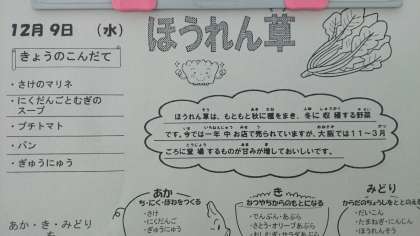 12月 9日 (水)
ほうれん草
きょうのこんだて
・さけのマリネ
・にくだんごとむぎの
スープ
・プチトマト
・パン
・ぎゅうにゅう
ほうれん草は、もともと秋に種をまき、冬に収穫する野菜
です。今では一年中お店で売られていますが、大阪では11~3月
ごろに登場するものが甘みが増しておいしいです。
あか・き・みどり
を
あか
ち・にく・ほねをつくる
・さけ
・にくだんご
・ぎゅうにゅう
き
ねつやちからのもとになる
・でんぷん・あぶら
・さとう・オリーブあぶら
みどり
からだのちょうしをととのえる
・だいこん
・たまねぎ・にんじん
・ほうれんそう